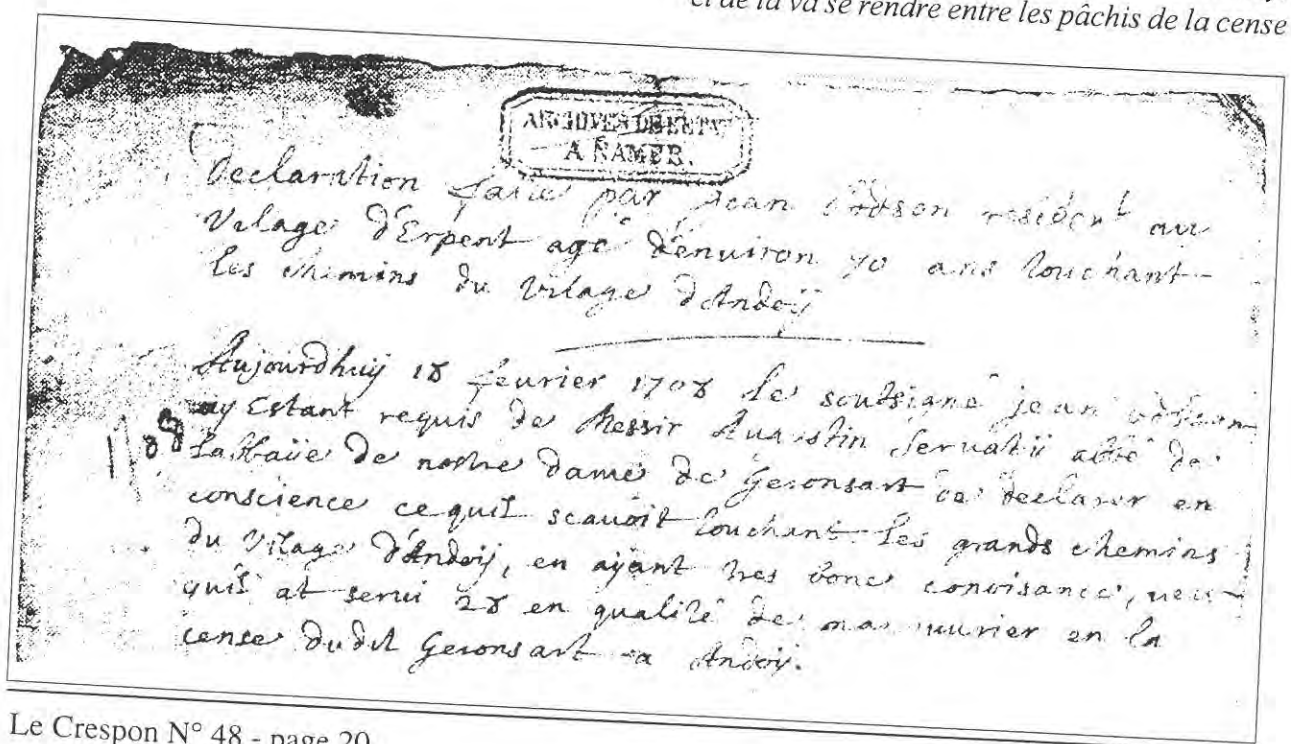 et de là va se rendre entre les pâchis de la cense
ARCHIVES DE L'ETAT
A NAMUR.
Declaration faite par jean residént au
Vilage d'Erpent agé d'énuiron 70 ans touchant
les chemins du Vilage d'Andoÿ
Aujourdhuÿ 18 feurier 1708 le soubsigné jean
aÿ Estant requis de Messir Augustin Seruatii abbé de
1708
La Baÿe de nostre dame de Geronsart de declarer en
conscience cequil scauoit touchant les grands chemins
du Vilage d'Andoÿ, en aÿant tres bone conoisance, ueu
quil at serui 28 en qualité de en la
cense dudit Geronsart a Andoÿ.
Le Crespon N° 48 - page 20